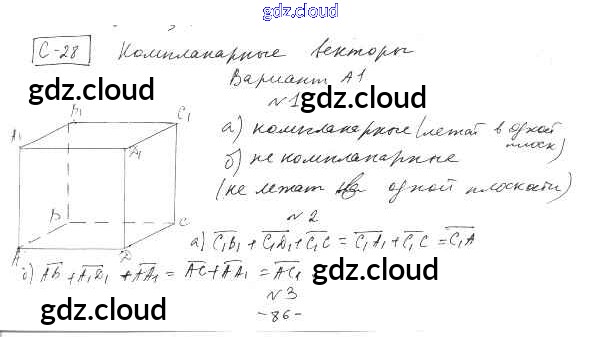 gdz.cloud
С-28 Компланарные векторы
Вариант А1
gdz.cloud gdz.cloud
№1
а) компланарные (лежат в одной плоск)
б) не компланарные
(не лежат в одной плоскости)
A1 B1 C1 D1
A B C D
gdz.cloud
№2
а) C1B1 + C1D1 + C1C = C1A1 + C1C = C1A
б) AB + A1D1 + AA1 = AC + AA1 = AC1
gdz.cloud gdz.cloud
№3
-86-